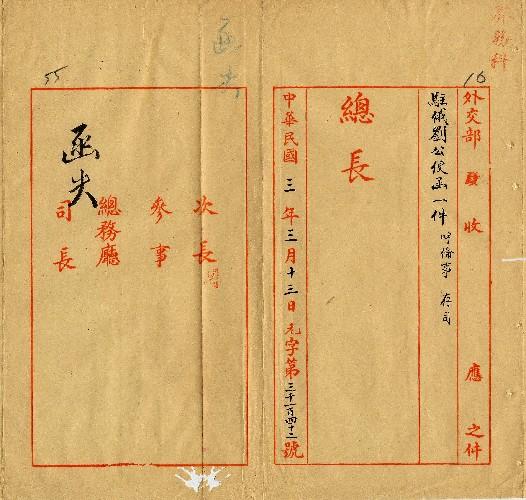 16
外交部發收應之件
駐俄劉公使函一件 呼倫事 存司
總長
中華民國三年三月十三日元字第三千一百四十二號
函
次長
參事
總務廳
司長
55